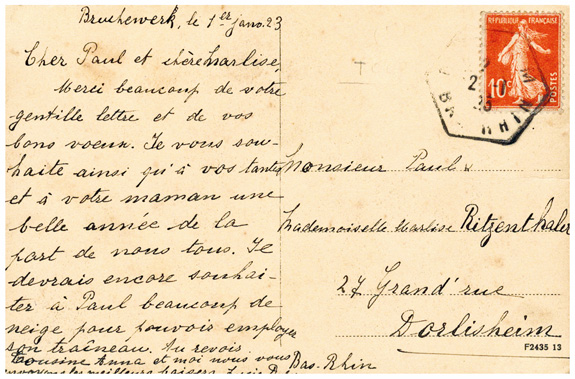 Bruchewerk, le 1er janv. 23
Cher Paul et chère Marlise,
Merci beaucoup de votre
gentille lettre et de vos
bons voeux. Je vous sou-
haite ainsi qu'à vos tantes
et à votre maman une
belle année de la
part de nous tous. Je
devrais encore souhai-
ter à Paul beaucoup de
neige pour pouvoir employer
son traîneau. Au revoir.
Cousine Anna et moi nous vous
envoyons les meilleurs baisers.
REPUBLIQUE FRANÇAISE
10c
POSTES
BAS RHIN
T
Monsieur Paul
Mademoiselle Marlise Ritzenthaler
27 Grand'rue
Dorlisheim
F2435 13
Bas-Rhin